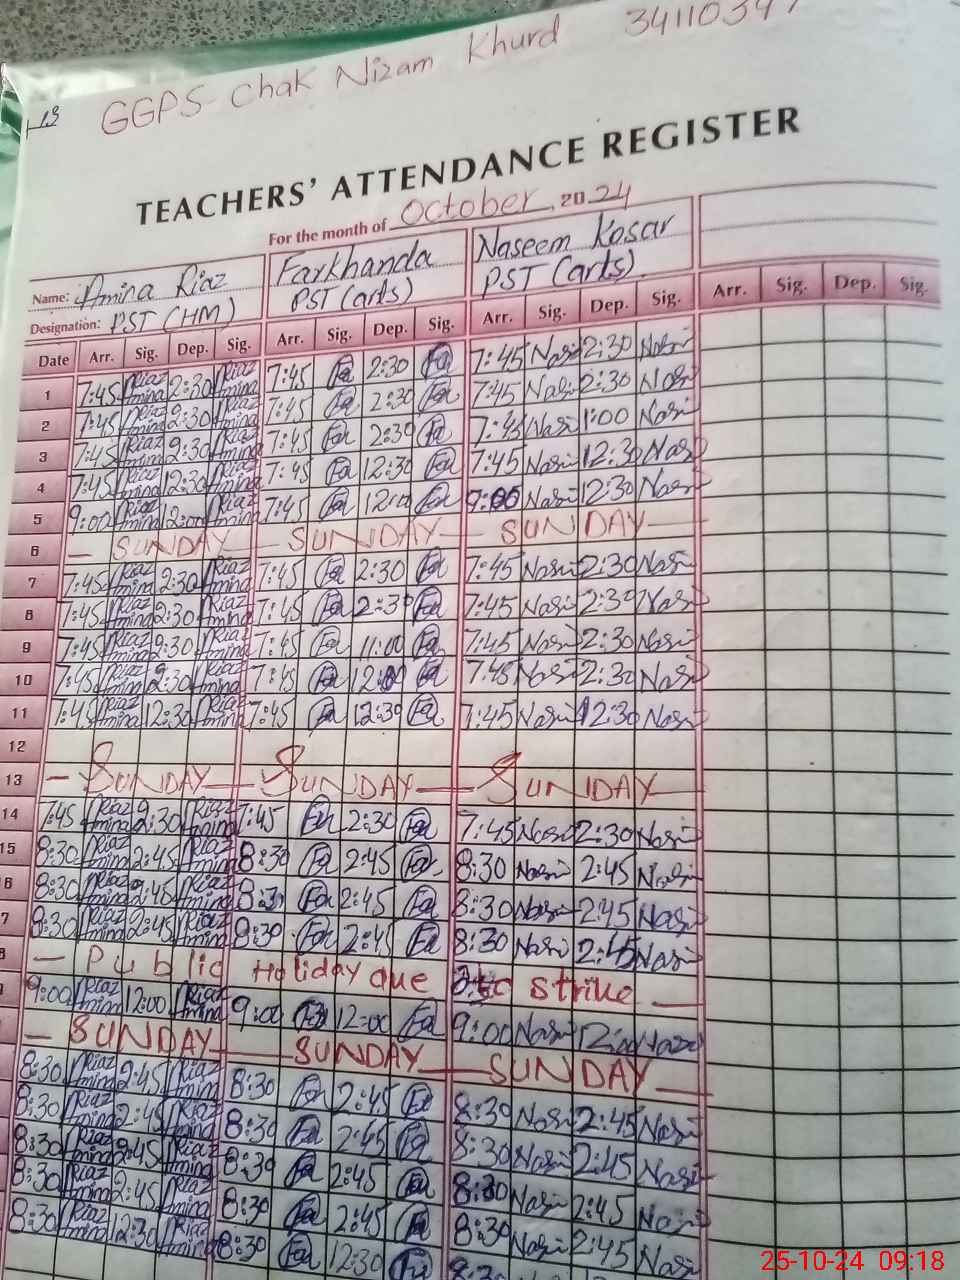 13
GGPS Chak Nizam Khurd 3411034
TEACHERS' ATTENDANCE REGISTER
For the month of October 2024
Name: Amina Riaz Farkhanda Naseem Kosar
Designation: PST (HM) PST (arts) PST (arts)
Date Arr. Sig. Dep. Sig. Arr. Sig. Dep. Sig. Arr. Sig. Dep. Sig. Arr. Sig. Dep. Sig.
1 7:45 Riaz Amina 2:30 Riaz Amina 7:45 Fa 2:30 Fa 7:45 Nasi 2:30 Nasi
2 7:45 Riaz Amina 2:30 Riaz Amina 7:45 Fa 2:30 Fa 7:45 Nasi 2:30 Nasi
3 7:45 Riaz Amina 2:30 Riaz Amina 7:45 Fa 2:30 Fa 7:45 Nasi 1:00 Nasi
4 7:45 Riaz Amina 12:30 Riaz Amina 7:45 Fa 12:30 Fa 7:45 Nasi 12:30 Nasi
5 9:00 Riaz Amina 12:00 Riaz Amina 7:45 Fa 12:00 Fa 9:00 Nasi 12:30 Nasi
6 — SUNDAY — SUNDAY — SUNDAY —
7 7:45 Riaz Amina 2:30 Riaz Amina 7:45 Fa 2:30 Fa 7:45 Nasi 2:30 Nasi
8 7:45 Riaz Amina 2:30 Riaz Amina 7:45 Fa 2:30 Fa 7:45 Nasi 2:30 Nasi
9 7:45 Riaz Amina 2:30 Riaz Amina 7:45 Fa 11:00 Fa 7:45 Nasi 2:30 Nasi
10 7:45 Riaz Amina 2:30 Riaz Amina 7:45 Fa 12:00 Fa 7:45 Nasi 2:30 Nasi
11 7:45 Riaz Amina 12:30 Riaz Amina 7:45 Fa 12:30 Fa 7:45 Nasi 12:30 Nasi
12
13 — SUNDAY — SUNDAY — SUNDAY —
14 7:45 Riaz Amina 2:30 Riaz Amina 7:45 Fa 2:30 Fa 7:45 Nasi 2:30 Nasi
15 8:30 Riaz Amina 2:45 Riaz Amina 8:30 Fa 2:45 Fa 8:30 Nasi 2:45 Nasi
6 8:30 Riaz Amina 2:45 Riaz Amina 8:30 Fa 2:45 Fa 8:30 Nasi 2:45 Nasi
7 8:30 Riaz Amina 2:45 Riaz Amina 8:30 Fa 2:45 Fa 8:30 Nasi 2:45 Nasi
8 — Public Holiday due to strike —
9:00 Riaz Amina 12:00 Riaz Amina 9:00 Fa 12:00 Fa 9:00 Nasi 12:00 Nasi
— SUNDAY — SUNDAY — SUNDAY —
8:30 Riaz Amina 2:45 Riaz Amina 8:30 Fa 2:45 Fa 8:30 Nasi 2:45 Nasi
8:30 Riaz Amina 2:45 Riaz Amina 8:30 Fa 2:45 Fa 8:30 Nasi 2:45 Nasi
8:30 Riaz Amina 2:45 Riaz Amina 8:30 Fa 2:45 Fa 8:30 Nasi 2:45 Nasi
8:30 Riaz Amina 2:45 Riaz Amina 8:30 Fa 2:45 Fa 8:30 Nasi 2:45 Nasi
8:30 Riaz Amina 12:30 Riaz Amina 8:30 Fa 12:30 Fa 8:30
25-10-24 09:18